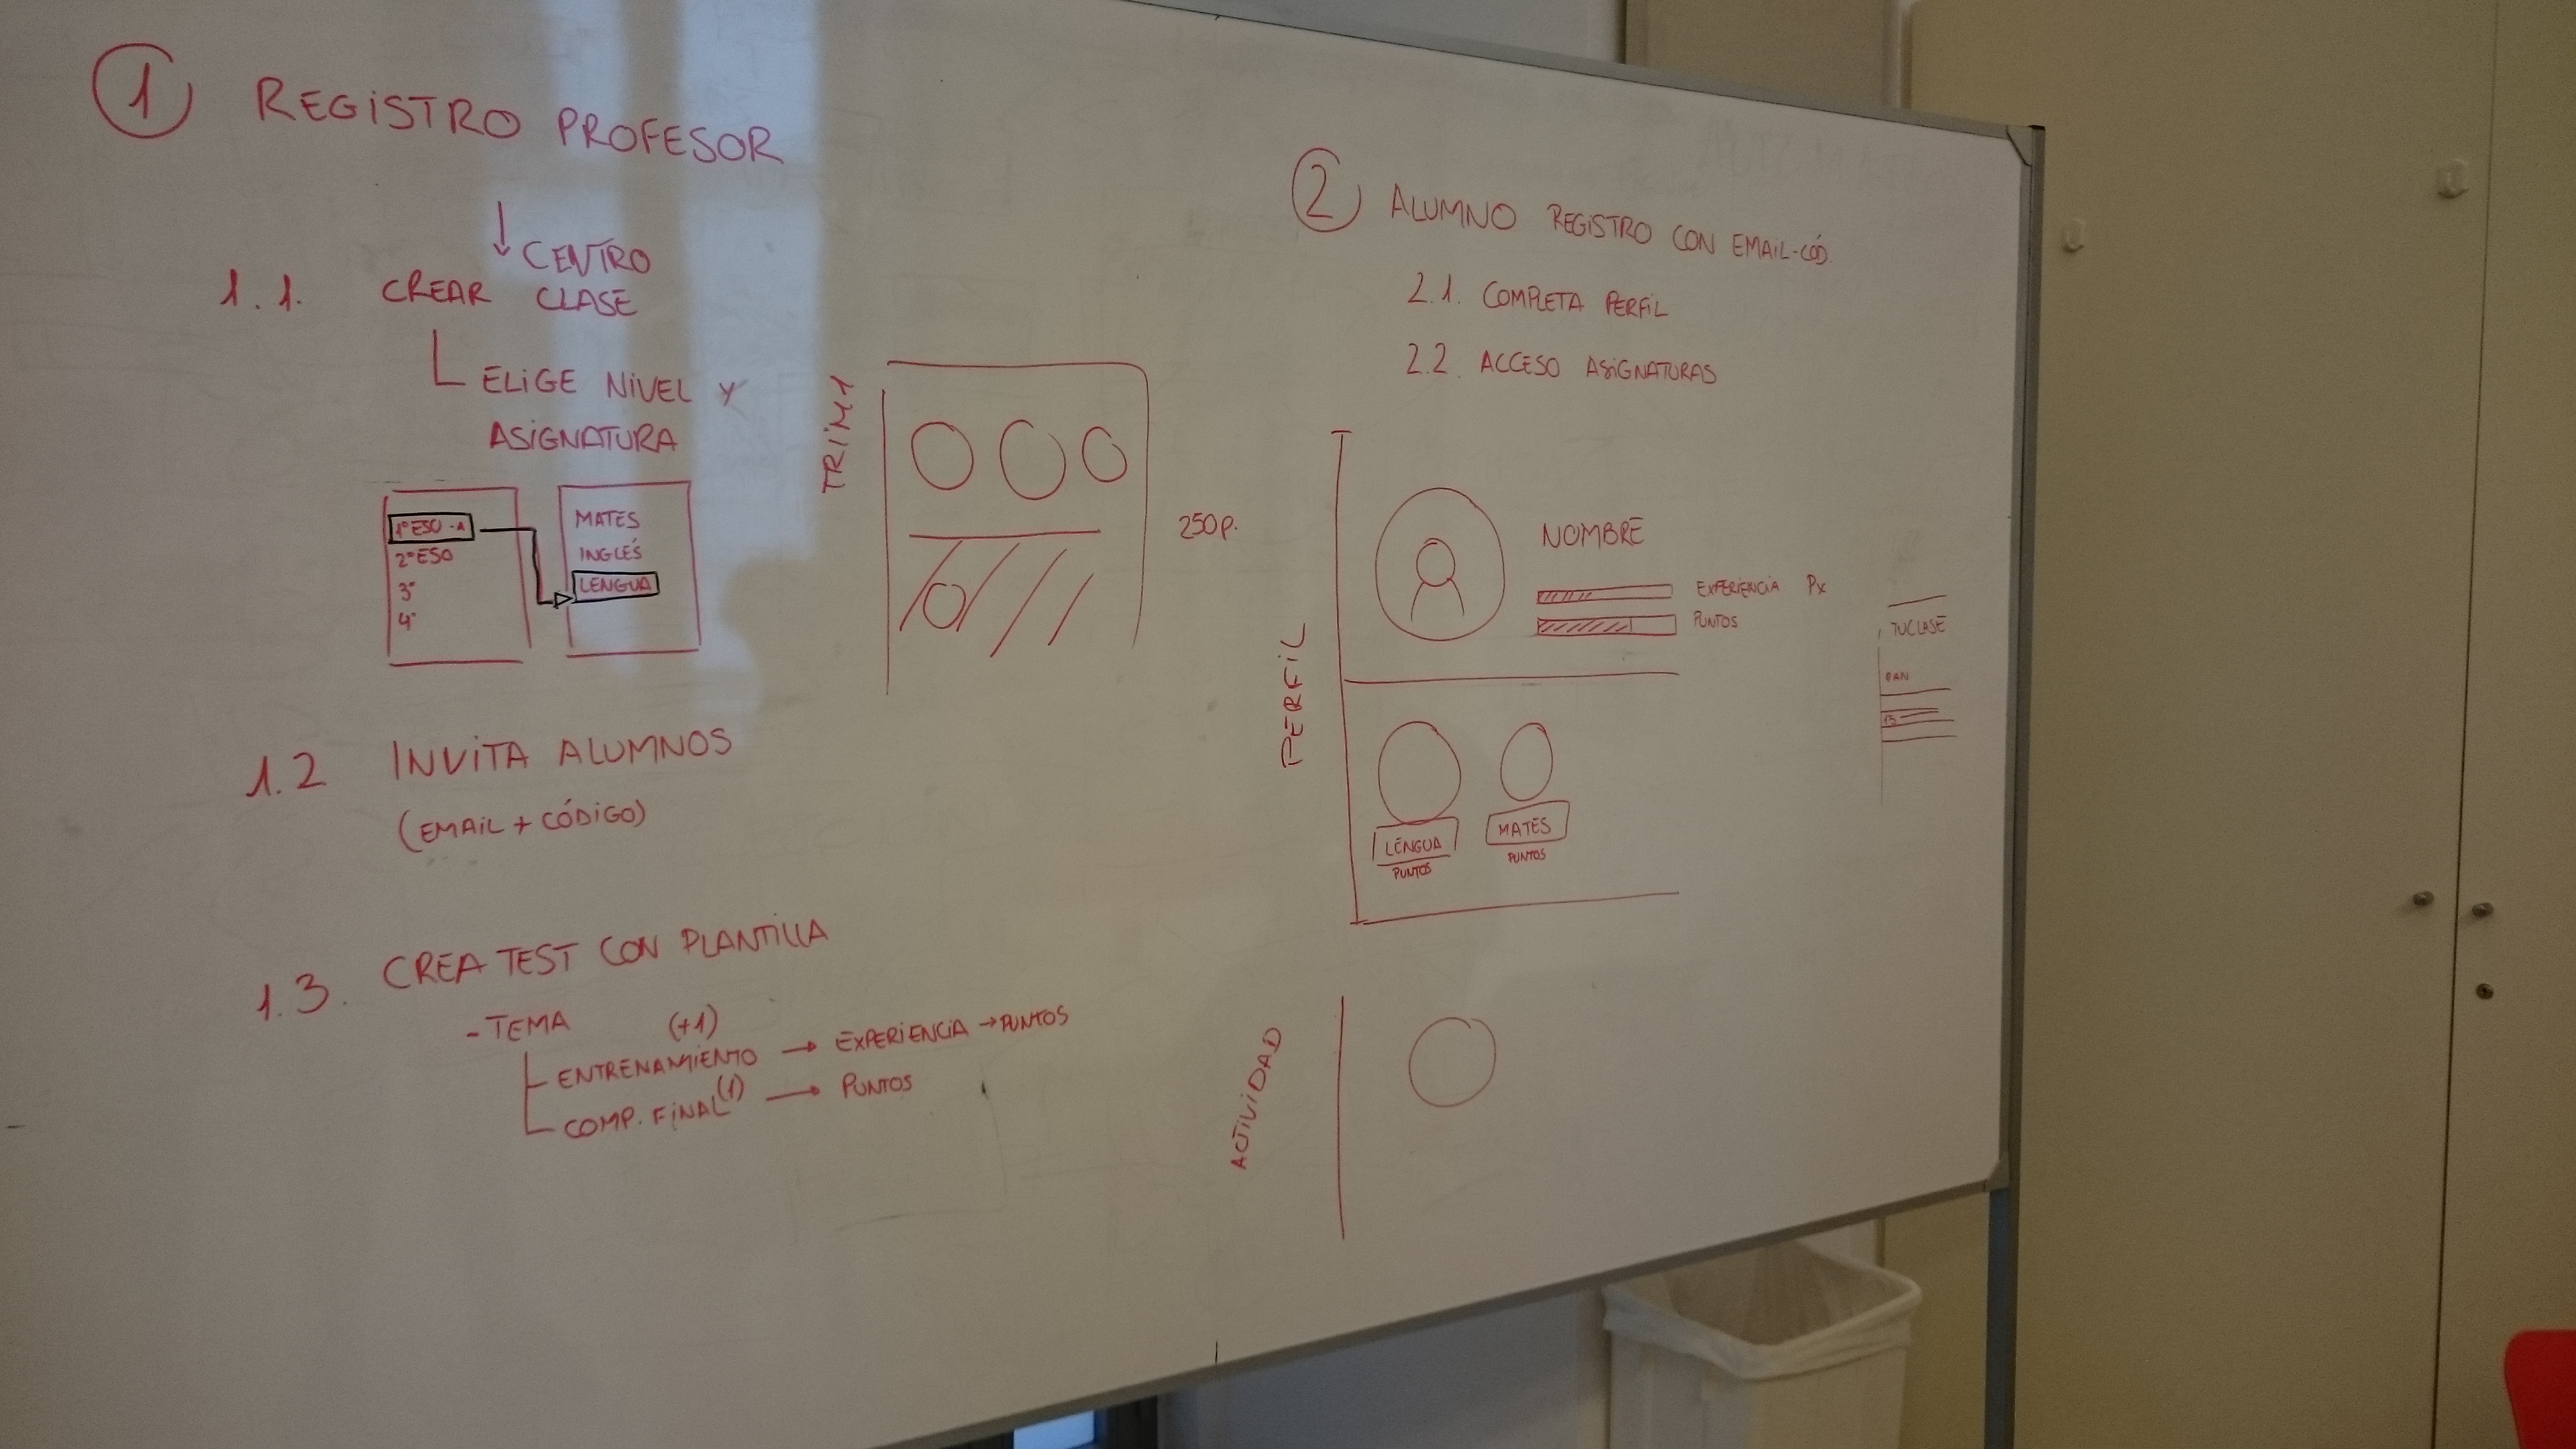 1 REGISTRO PROFESOR
↓ CENTRO
1.1. CREAR CLASE
ELIGE NIVEL Y
ASIGNATURA
1º ESO - A
2º ESO
3º
4º
MATES
INGLÉS
LENGUA
1.2 INVITA ALUMNOS
(EMAIL + CÓDIGO)
1.3. CREA TEST CON PLANTILLA
- TEMA (+1)
ENTRENAMIENTO → EXPERIENCIA → PUNTOS
COMP. FINAL (1) → PUNTOS
TRIM 1
250 p.
2 ALUMNO REGISTRO CON EMAIL-CÓD.
2.1. COMPLETA PERFIL
2.2. ACCESO ASIGNATURAS
PERFIL
NOMBRE
EXPERIENCIA Px
PUNTOS
LENGUA
PUNTOS
MATES
PUNTOS
TU CLASE
ACTIVIDAD